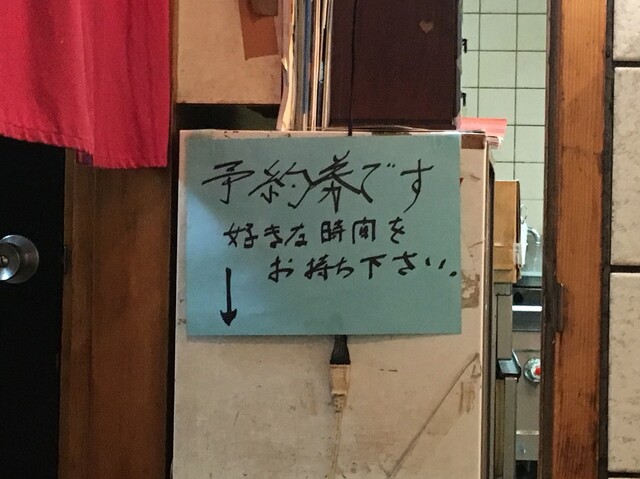 予約券です
好きな時間を
お持ち下さい。
↓